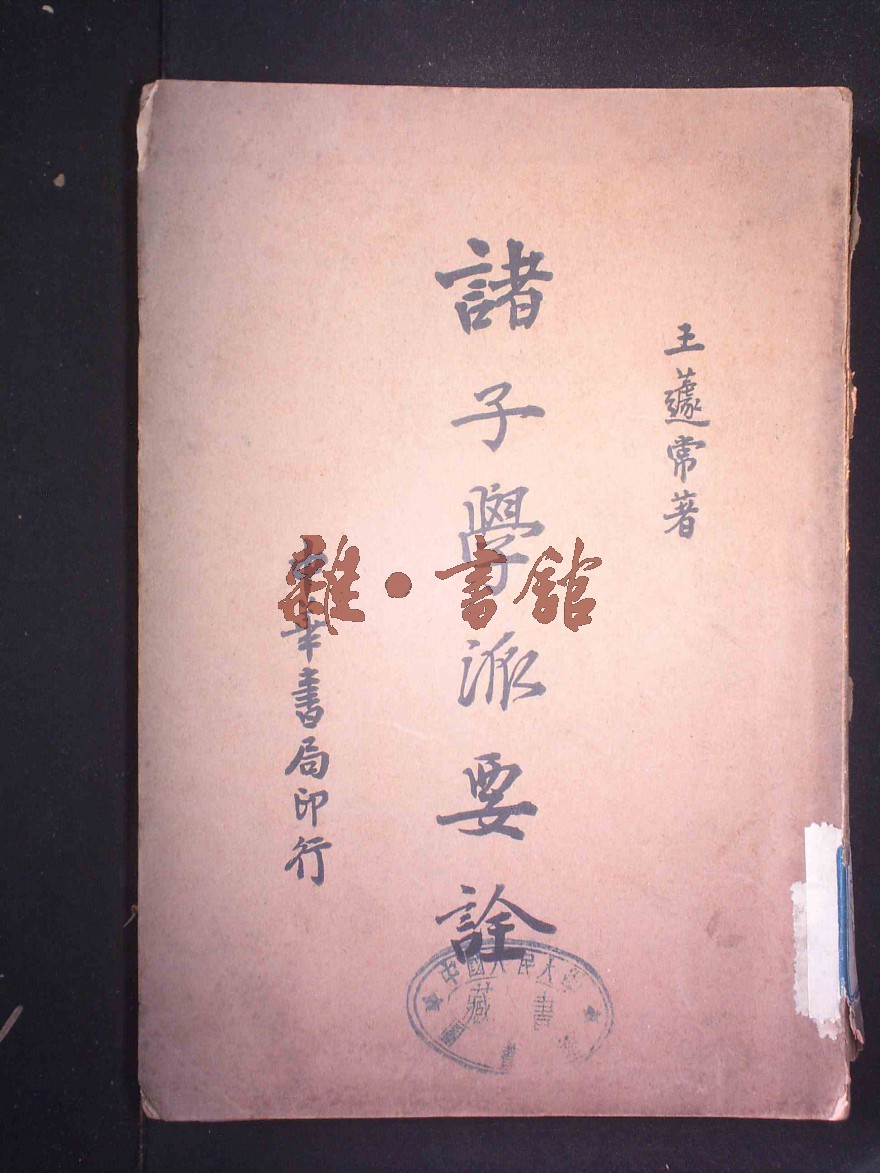 王蘧常著
諸子學派要詮
中華書局印行
雜·書舘
中國人民大學
藏書